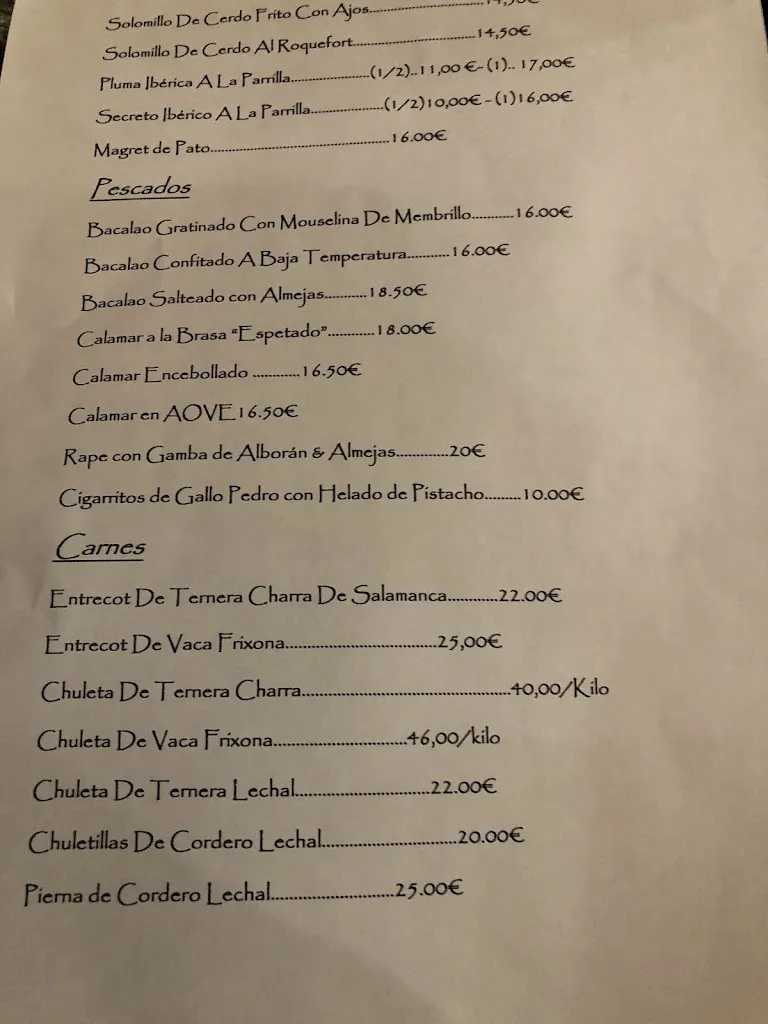 Solomillo De Cerdo Frito Con Ajos
Solomillo De Cerdo Al Roquefort..............................14,50€
Pluma Ibérica A La Parrilla.....................(1/2)..11,00 €-(1).. 17,00€
Secreto Ibérico A La Parrilla...................(1/2)10,00€ - (1)16,00€
Magret de Pato................................................16.00€
Pescados
Bacalao Gratinado Con Mouselina De Membrillo...........16.00€
Bacalao Confitado A Baja Temperatura...........16.00€
Bacalao Salteado con Almejas...........18.50€
Calamar a la Brasa “Espetado”............18.00€
Calamar Encebollado ............16.50€
Calamar en AOVE16.50€
Rape con Gamba de Alborán & Almejas.............20€
Cigarritos de Gallo Pedro con Helado de Pistacho.........10.00€
Carnes
Entrecot De Ternera Charra De Salamanca............22.00€
Entrecot De Vaca Frixona.....................................25,00€
Chuleta De Ternera Charra..................................................40,00/Kilo
Chuleta De Vaca Frixona................................46,00/kilo
Chuleta De Ternera Lechal................................22.00€
Chuletillas De Cordero Lechal................................20.00€
Pierna de Cordero Lechal.............................25.00€